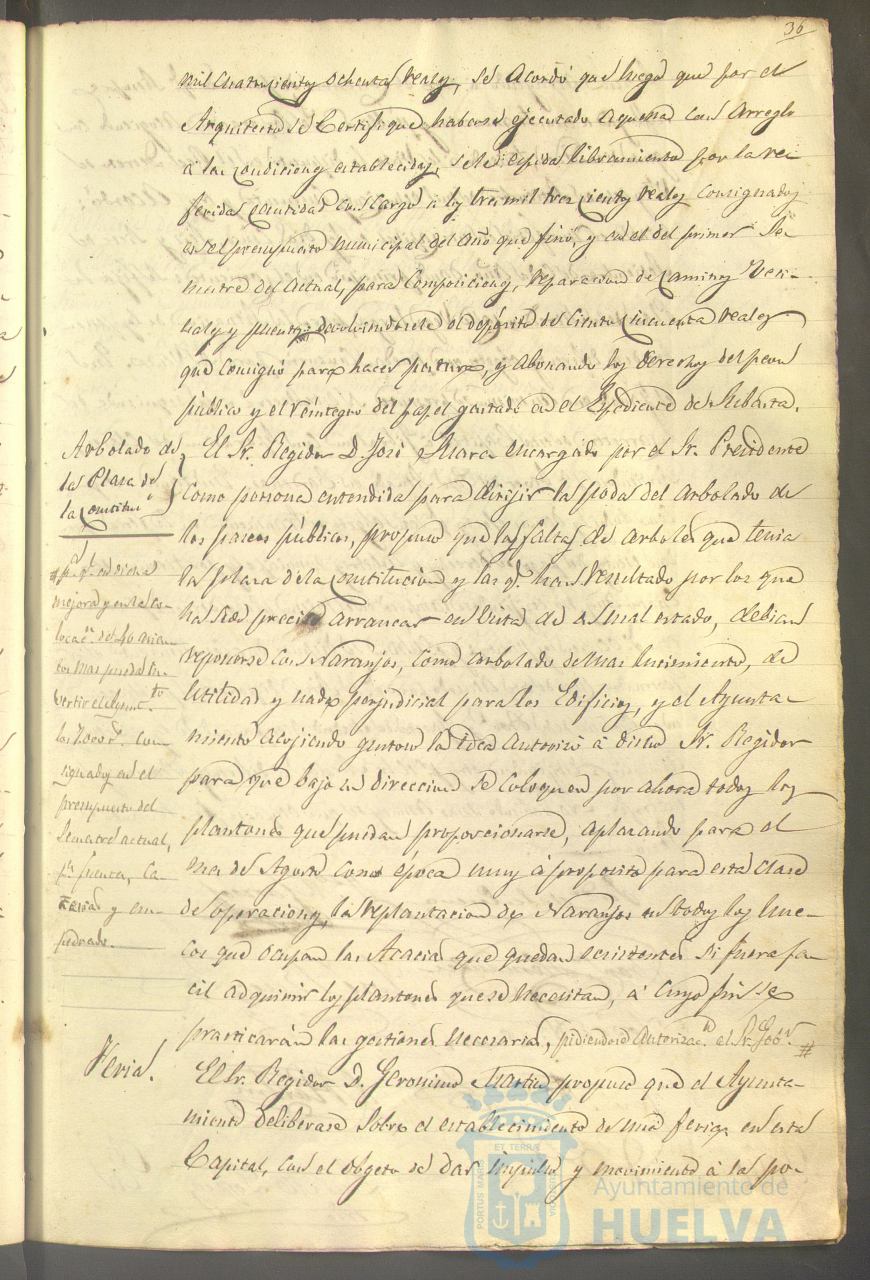 36
mil cuatrocientos ochenta reales, se acordó que luego que por el
Arquitecto se certifique haberse ejecutado aquella con arreglo
á las condiciones establecidas, se le expida libramiento por la re-
ferida cantidad con cargo á los tres mil trescientos reales consignados
en el presupuesto municipal del año que finó, y en el del primer Se-
mestre del actual, para composiciones, reparacion de caminos veci-
nales y puentes devolviendosele el depósito de ciento cincuenta reales
que consignó para hacer postura, y abonando los derechos del peon
público y el reintegro del papel gastado en el Espediente de Subasta.
Arbolado de
la Plaza de
la Constitun.
El Sr. Regidor D. José encargado por el Sr. Presidente
como persona entendida para dirijir la poda del arbolado de
los paseos públicos, propuso que las faltas de arboles que tenia
la plaza de la Constitucion y las q. han resultado por los que
ha sido preciso arrancar en vista de su mal estado, debian
reponerse con Naranjos, como arbolado de mas lucimiento, de
utilidad y nada perjudicial para los Edificios, y el Ayunta-
miento acojiendo gustoso la idea autorizó á dicho Sr. Regidor
para que bajo su direccion se coloquen por ahora todos los
plantones que puedan proporcionarse, aplazando para el
mes de Agosto como época muy á proposito para esta clase
de operaciones, la replantacion de Naranjos en todos los hue-
cos que ocupan las Acacias que quedan ecsistentes si fuere fa-
cil adquirir los plantones que se necesitan, á cuyo fin se
practicarán las gestiones necesarias, pidiendose autorizacn. al Sr. Gobr. #
# pa. q. en dicha
mejora y en la co-
locacn. de
los mas pueda in-
vertir el Ayuntto.
los 7.000 rs. con-
signados en el
presupuesto del
Semestre actual,
pa. fuentes, ca-
ñerias y em-
pedrado.
Feria.
El Sr. Regidor D. Geronimo Martin propuso que el Ayunta-
miento deliberase sobre el establecimiento de una feria en esta
Capital, con el obgeto de dar impulso y movimiento á la po-
PORTUS MARIS
ET TERRÆ
CUSTODIA
Ayuntamiento de
HUELVA